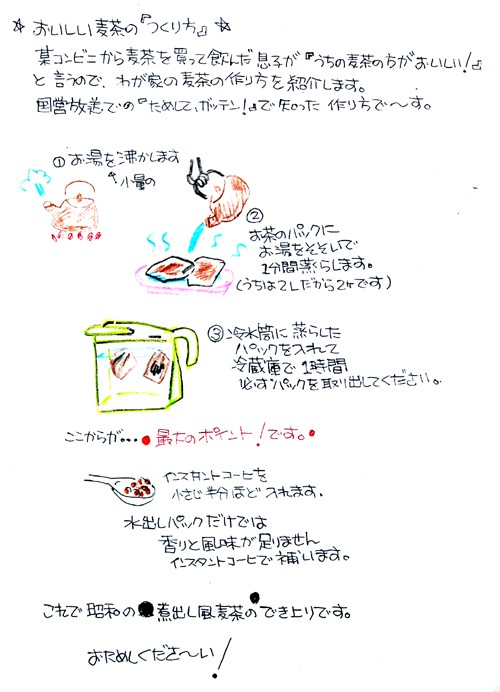 ☆ おいしい麦茶の『つくり方』 ☆
某コンビニから麦茶を買って飲んだ息子が『うちの麦茶の方がおいしい!』
と言うので、わが家の麦茶の作り方を紹介します。
国営放送での『ためしてガッテン!』で知った作り方で〜す。
① お湯を沸かします
↑小量の
②
お茶のパックに
お湯をそそいで
1分間蒸らします。
(うちは2Lだから2ケです)
③ 冷水筒に蒸らした
パックを入れて
冷蔵庫で1時間
必ずパックを取り出してください。
ここからが・・・●最大のポイント!です。●
インスタントコーヒーを
小さじ半分ほど入れます.
水出しパックだけでは
香りと風味が足りません
インスタントコーヒーで補います。
これで昭和の●煮出し風麦茶のでき上りです。
おためしくださ〜い!